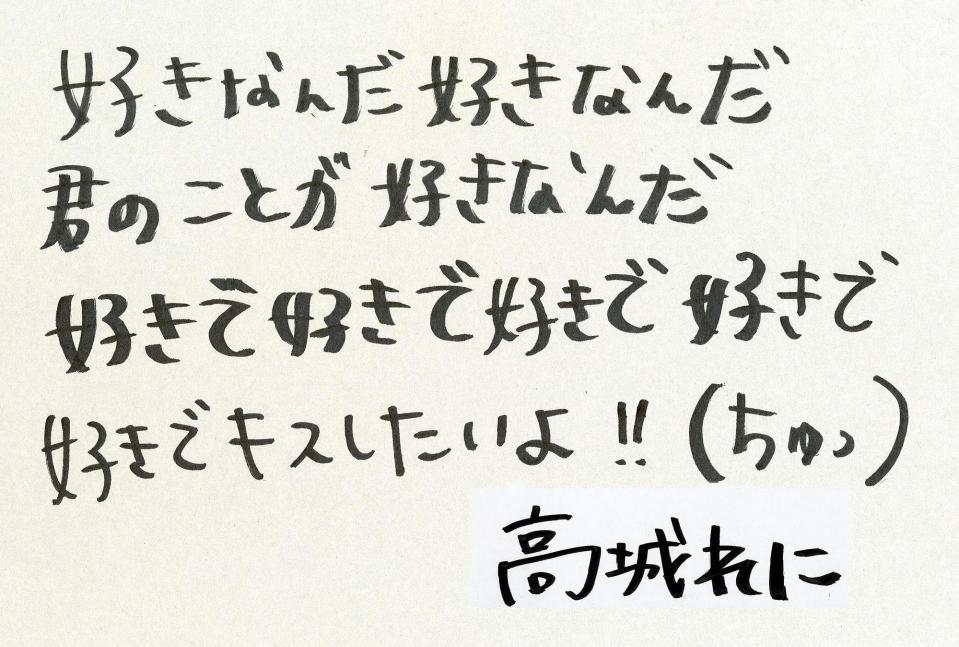 好きなんだ 好きなんだ
君のことが 好きなんだ
好きで好きで好きで好きで
好きでキスしたいよ!!(ちゅっ)
高城れに